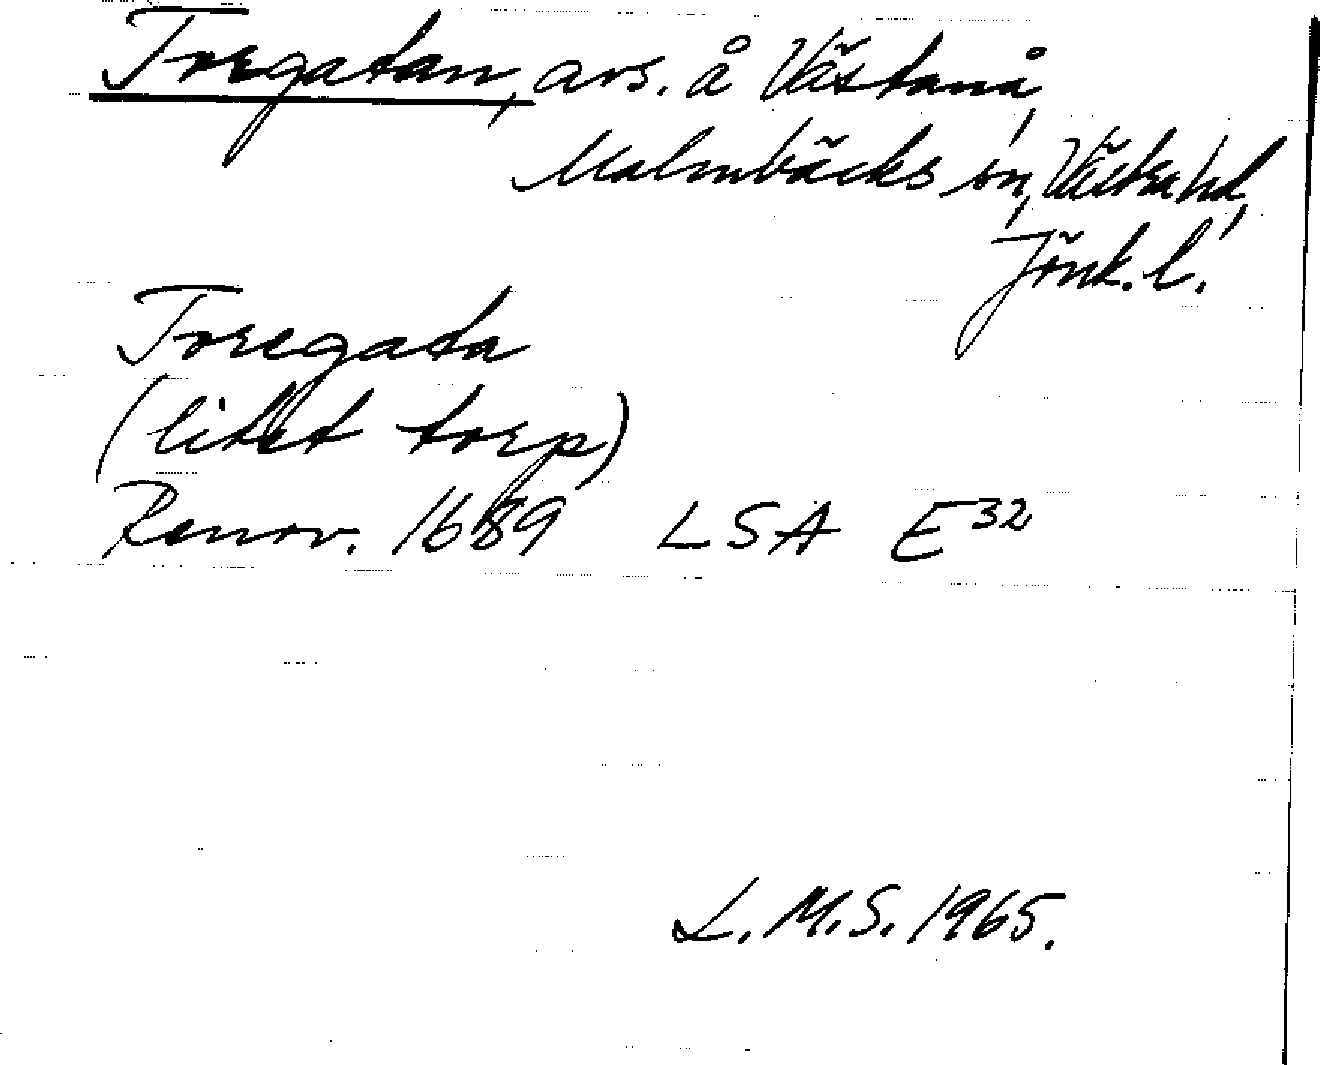 Toregatan, avs. å Västanå,
Malmbäcks sn, Västra hd,
Jönk. l.
Toregata
(litet torp)
Renov. 1689 LSA E32
L. M. S. 1965.